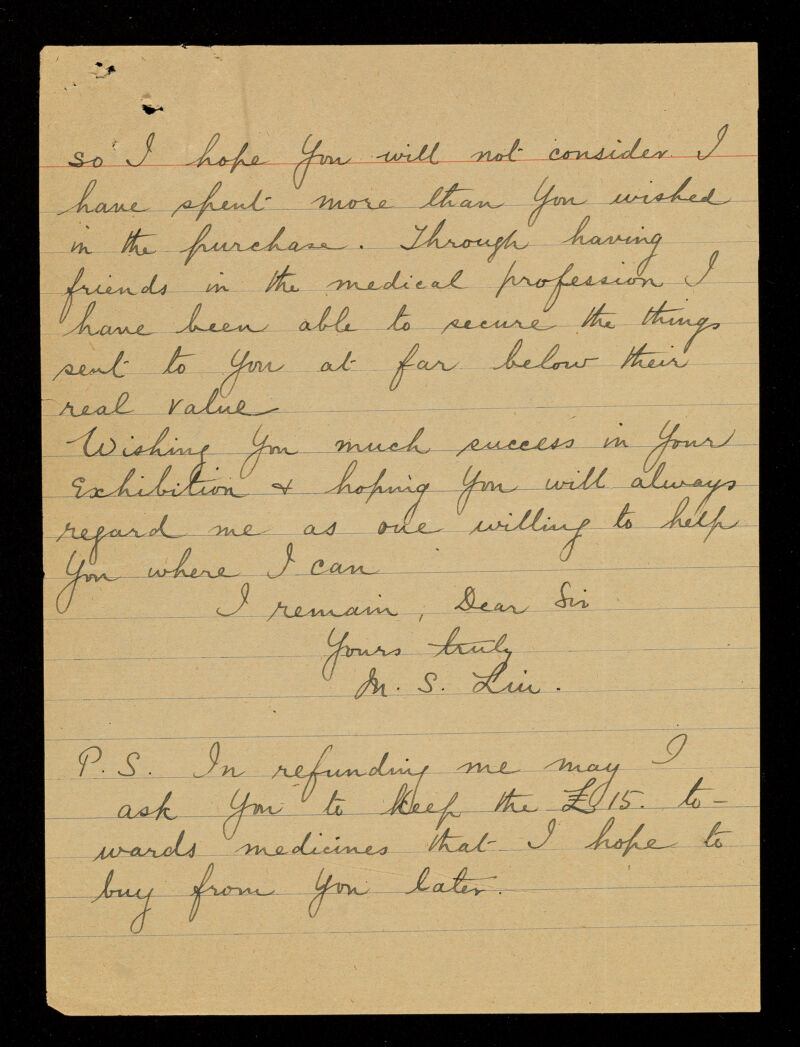 so I hope You will not consider I
have spent more than You wished
in the purchase. Through having
friends in the medical profession I
have been able to secure the things
sent to You at far below their
real value
Wishing You much success in Your
Exhibition & hoping You will always
regard me as one willing to help
You where I can
I remain, Dear Sir
Yours truly
M. S. Liu.
P.S. In refunding me may I
ask You to keep the £15. to-
wards medicines that I hope to
buy from You later.